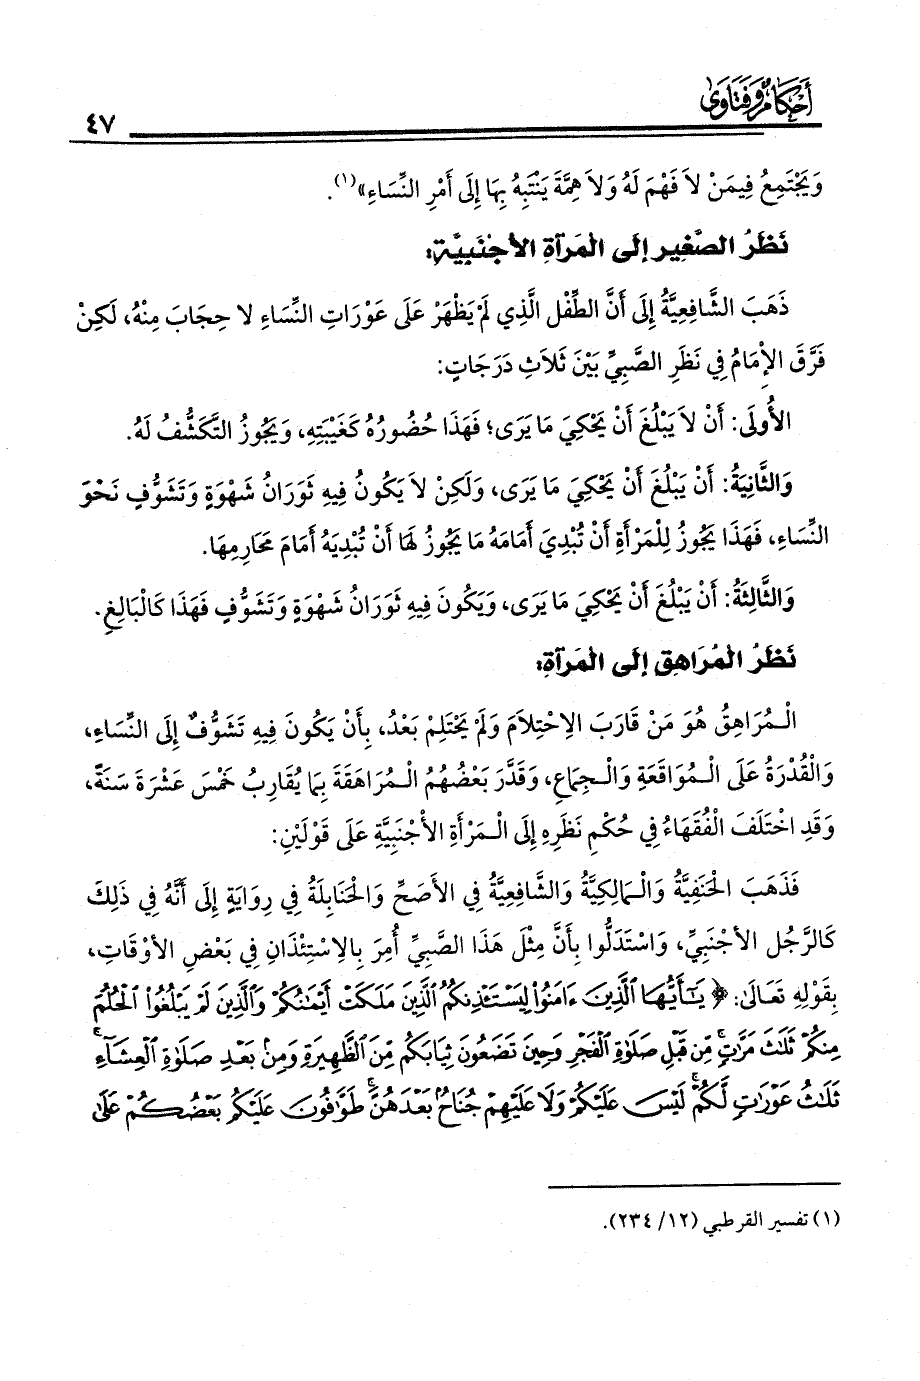 أَحْكَامٌ وَفَتَاوَى
٤٧
وَيَجْتَمِعُ فِيمَنْ لاَ فَهْمَ لَهُ وَلاَ هِمَّةَ يَنْتَبِهُ بِهَا إِلَى أَمْرِ النِّسَاءِ»(١).
نَظَرُ الصَّغِيرِ إِلَى المَرْأَةِ الأَجْنَبِيَّةِ:
ذَهَبَ الشَّافِعِيَّةُ إِلَى أَنَّ الطِّفْلَ الَّذِي لَمْ يَظْهَرْ عَلَى عَوْرَاتِ النِّسَاءِ لا حِجَابَ مِنْهُ، لَكِنْ
فَرَّقَ الإِمَامُ فِي نَظَرِ الصَّبِيِّ بَيْنَ ثَلَاثِ دَرَجَاتٍ:
الأُولَى: أَنْ لاَ يَبْلُغَ أَنْ يَحْكِيَ مَا يَرَى؛ فَهَذَا حُضُورُهُ كَغَيْبَتِهِ، وَيَجُوزُ التَّكَشُّفُ لَهُ.
وَالثَّانِيَةُ: أَنْ يَبْلُغَ أَنْ يَحْكِيَ مَا يَرَى، وَلَكِنْ لاَ يَكُونُ فِيهِ ثَوَرَانُ شَهْوَةٍ وَتَشَوُّفٍ نَحْوَ
النِّسَاءِ، فَهَذَا يَجُوزُ لِلْمَرْأَةِ أَنْ تُبْدِيَ أَمَامَهُ مَا يَجُوزُ لَهَا أَنْ تُبْدِيَهُ أَمَامَ مَحَارِمِهَا.
وَالثَّالِثَةُ: أَنْ يَبْلُغَ أَنْ يَحْكِيَ مَا يَرَى، وَيَكُونَ فِيهِ ثَوَرَانُ شَهْوَةٍ وَتَشَوُّفٍ فَهَذَا كَالْبَالِغِ.
نَظَرُ المُرَاهِقِ إِلَى المَرْأَةِ:
الْمُرَاهِقُ هُوَ مَنْ قَارَبَ الِاحْتِلاَمَ وَلَمْ يَحْتَلِمْ بَعْدُ، بِأَنْ يَكُونَ فِيهِ تَشَوُّفٌ إِلَى النِّسَاءِ،
وَالْقُدْرَةُ عَلَى الْمُوَاقَعَةِ وَالْجِمَاعِ، وَقَدَّرَ بَعْضُهُمُ الْمُرَاهَقَةَ بِمَا يُقَارِبُ خَمْسَ عَشْرَةَ سَنَةً،
وَقَدِ اخْتَلَفَ الْفُقَهَاءُ فِي حُكْمِ نَظَرِهِ إِلَى الْمَرْأَةِ الأَجْنَبِيَّةِ عَلَى قَوْلَيْنِ:
فَذَهَبَ الْحَنَفِيَّةُ وَالْمَالِكِيَّةُ وَالشَّافِعِيَّةُ فِي الأَصَحِّ وَالْحَنَابِلَةُ فِي رِوَايَةٍ إِلَى أَنَّهُ فِي ذَلِكَ
كَالرَّجُلِ الأَجْنَبِيِّ، وَاسْتَدَلُّوا بِأَنَّ مِثْلَ هَذَا الصَّبِيِّ أُمِرَ بِالِاسْتِئْذَانِ فِي بَعْضِ الأَوْقَاتِ،
بِقَوْلِهِ تَعَالَى: ﴿ يَٰٓأَيُّهَا ٱلَّذِينَ ءَامَنُوا۟ لِيَسْتَـْٔذِنكُمُ ٱلَّذِينَ مَلَكَتْ أَيْمَٰنُكُمْ وَٱلَّذِينَ لَمْ يَبْلُغُوا۟ ٱلْحُلُمَ
مِنكُمْ ثَلَٰثَ مَرَّٰتٍ ۚ مِّن قَبْلِ صَلَوٰةِ ٱلْفَجْرِ وَحِينَ تَضَعُونَ ثِيَابَكُم مِّنَ ٱلظَّهِيرَةِ وَمِنۢ بَعْدِ صَلَوٰةِ ٱلْعِشَآءِ ۚ
ثَلَٰثُ عَوْرَٰتٍ لَّكُمْ ۚ لَيْسَ عَلَيْكُمْ وَلَا عَلَيْهِمْ جُنَاحٌۢ بَعْدَهُنَّ ۚ طَوَّٰفُونَ عَلَيْكُم بَعْضُكُمْ عَلَىٰ
(١) تفسير القرطبي (١٢/ ٢٣٤).